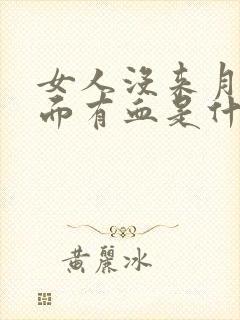 女人没来月
而有血是什
黄丽冰